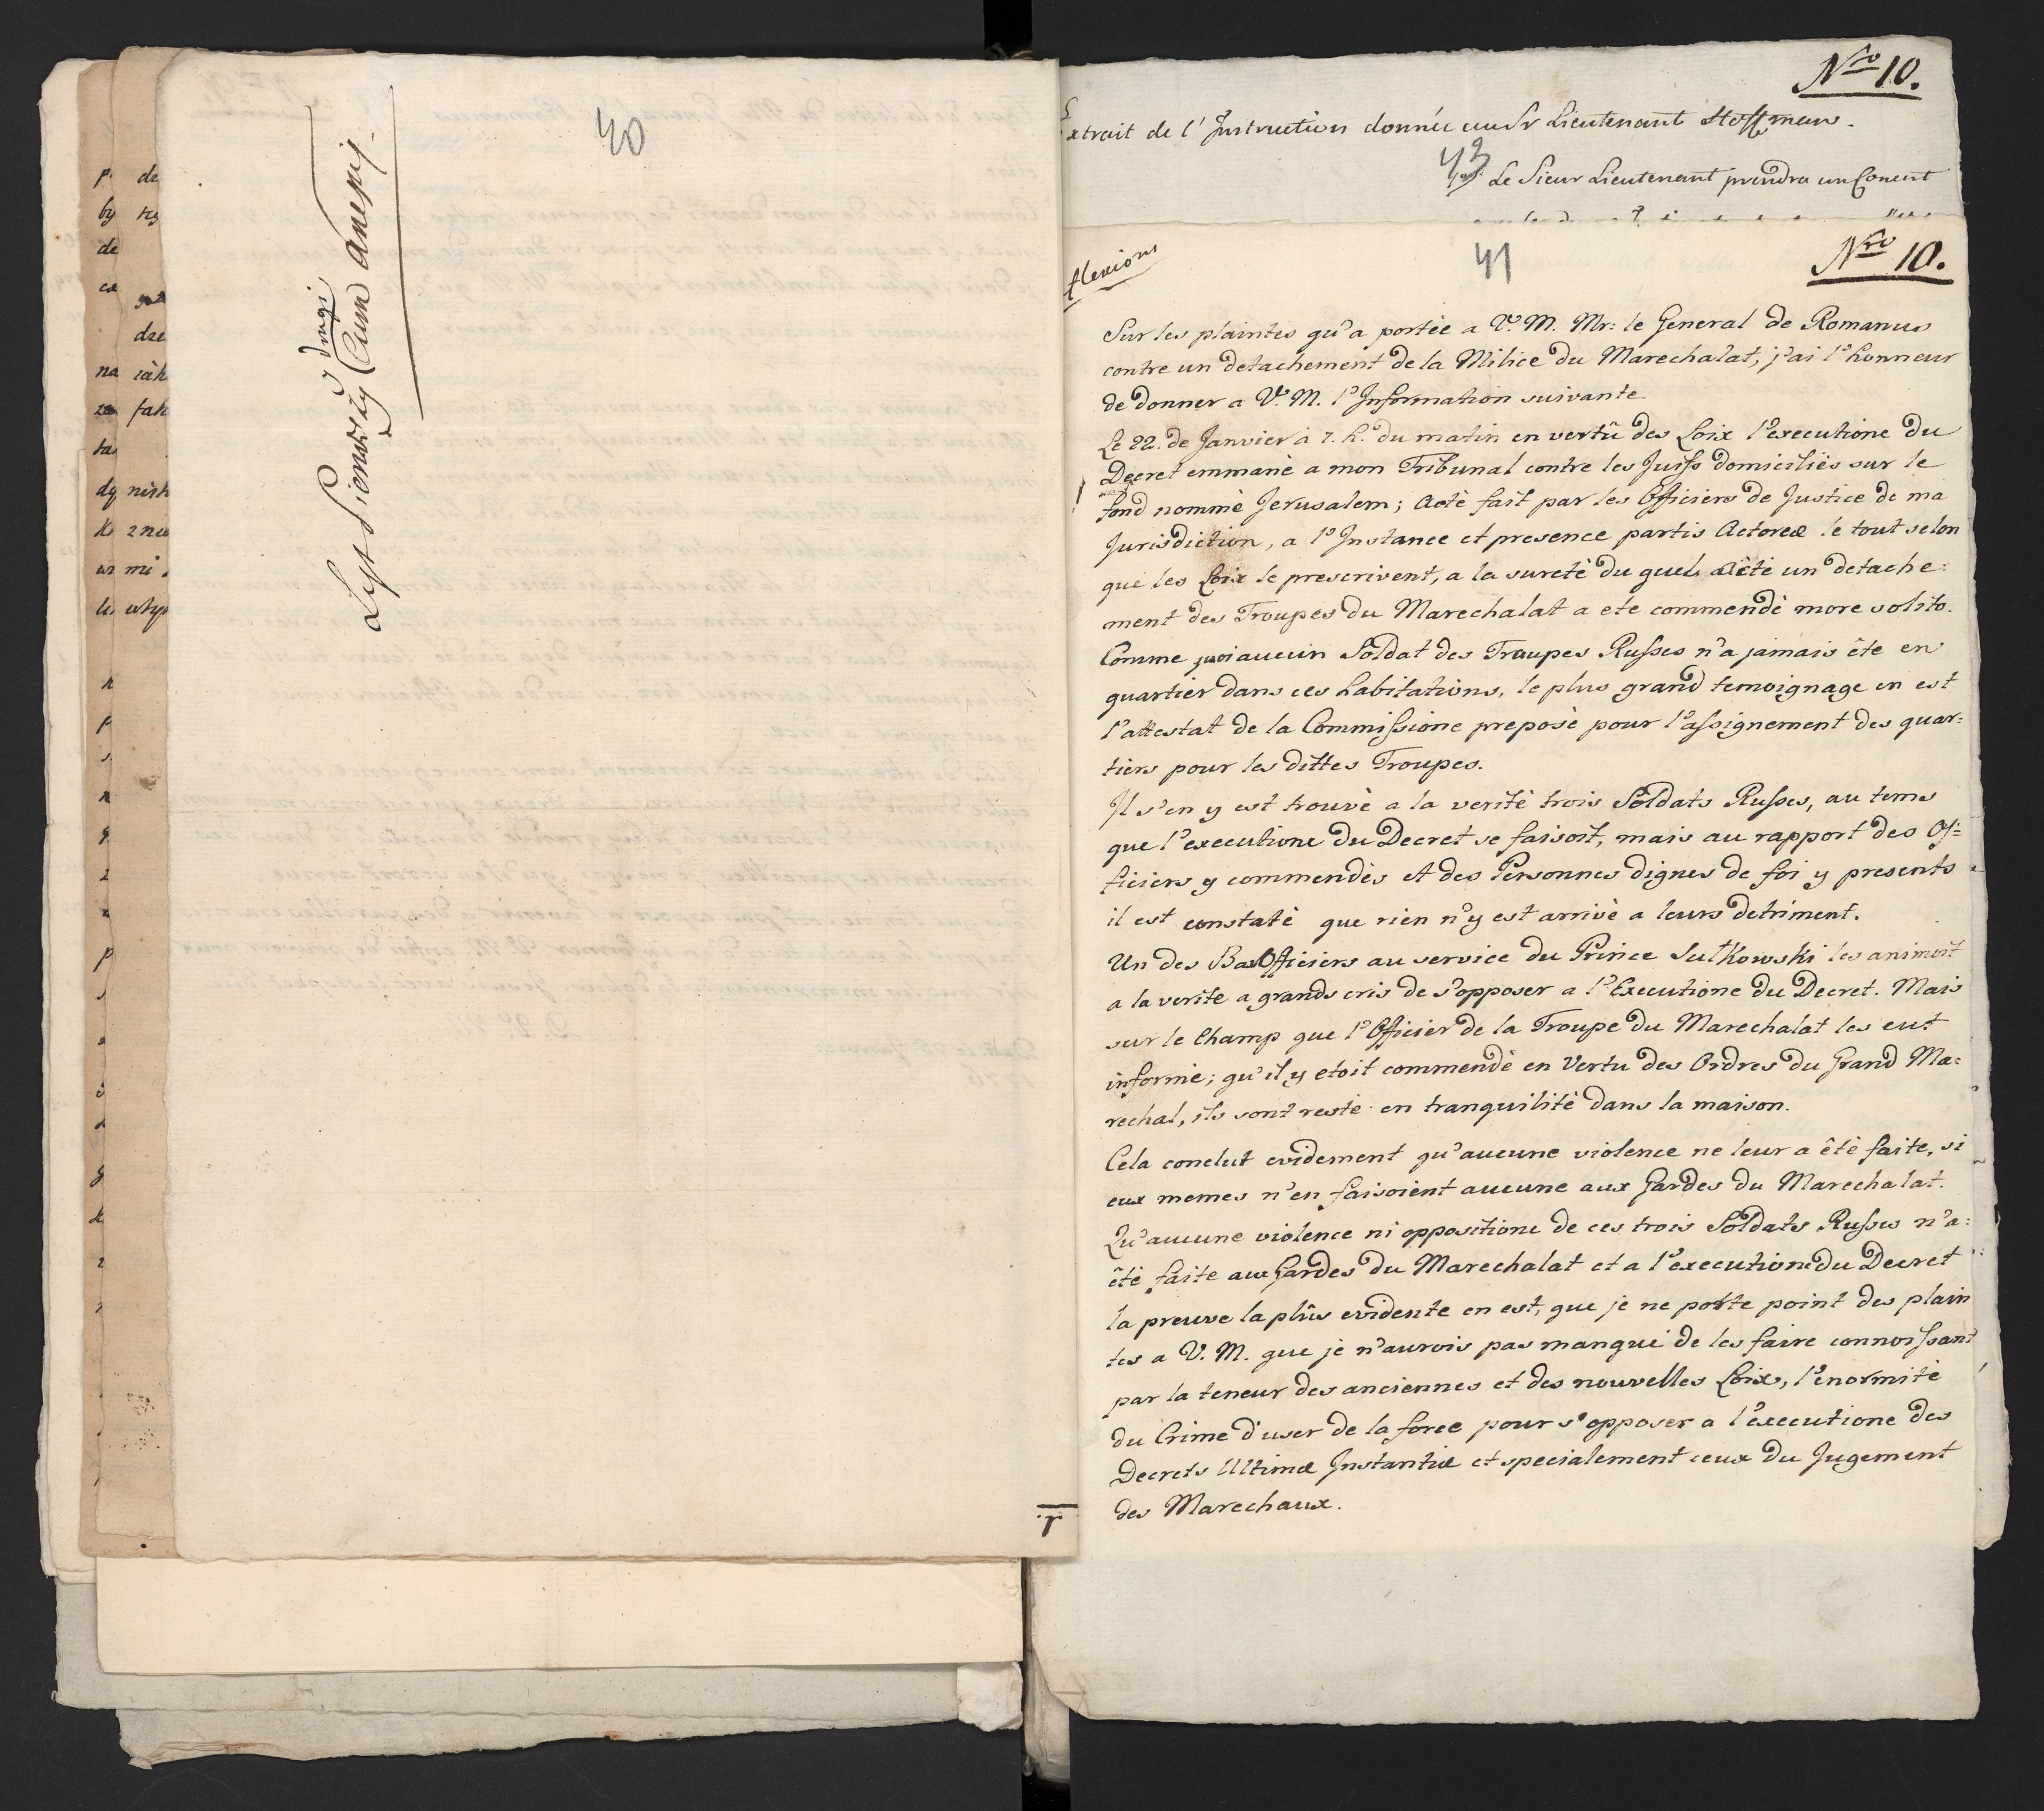 40
List Pierwszy drugi Cum Anexis.
Nro 10.
Extrait de l'Instruction donnée au Sr Lieutenant Hoffman.
43
Le Sieur Lieutenant prendra un
41
Nro 10.
flexions
Sur les plaintes qu'a portée a V. M. Mr: le General de Romanus
contre un detachement de la Milice du Marechalat, j'ai l'honneur
de donner a V. M. l'Information suivante.
Le 22. de Janvier à 7. h. du matin en vertû des Loix l'executione du
Decret emmanè a mon Tribunal contre les Juifs domiciliès sur le
fond nommè Jerusalem; Actè fait par les Officiers de Justice de ma
Jurisdiction, a l'Instance et presence partis Actoreæ le tout selon
que les Loix le prescrivent, a la suretè du quel un detache=
ment des Troupes du Marechalat a ete commendè more solito.
Comme quoi aucun Soldat des Troupes Russes n'a jamais ête en
quartier dans ces habitations, le plus grand temoignage en est
l'attestat de la Commissione preposè pour l'assignement des quar=
tiers pour les dittes Troupes.
Il s'en y est trouvè a la veritè trois Soldats Russes, au tems
que l'executione du Decret se faisoit, mais au rapport des Of=
ficiers y commendès et des Personnes dignes de foi y presents
il est constatè que rien n'y est arrivè a leurs detriment.
Un des Bas Officiers au service du Prince Sulkowski les animoit
a la verite a grands cris de s'opposer a l'Executione du Decret. Mais
sur le Champ que l'Officier de la Troupe du Marechalat les eut
informè; qu'il y etoit commendè en Vertu des Ordres du Grand Ma=
rechal, ils sont restè en tranquilitè dans la maison.
Cela conclut evidement qu'aucune violence ne leur a êtè faite, si
eux memes n'en faisoient aucune aux Gardes du Marechalat.
Qu'aucune violence ni oppositione de ces trois Soldats Russes n'a=
êtè faite aux Gardes du Marechalat et a l'executione du Decret
la preuve la plûs evidente en est, que je ne porte point des plain
tes a V. M. que je n'aurois pas manquè de les faire connoissant
par la teneur des anciennes et des nouvelles Loix, l'enormitè
du Crime d'user de la force pour s'opposer a l'executione des
Decrets Ultimæ Instantiæ et specialement ceux du Jugement
des Marechaux.